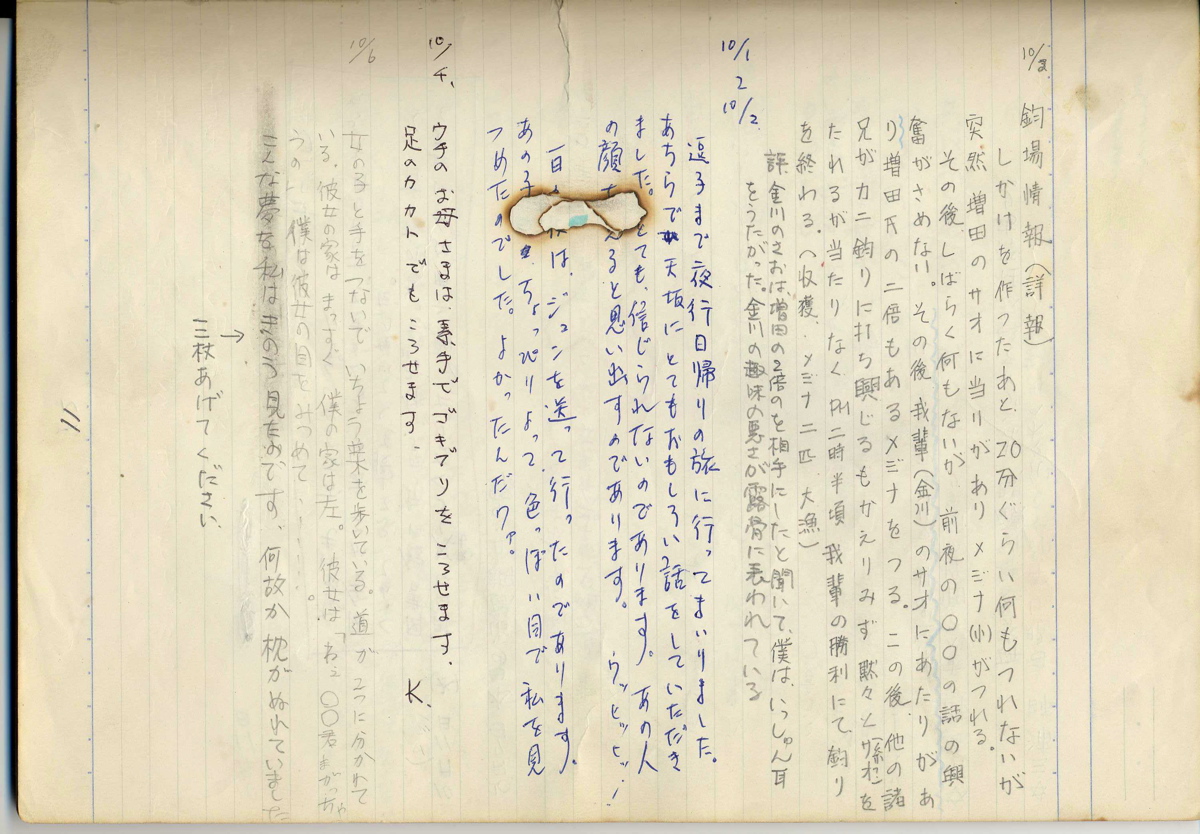 10/2 釣場情報(詳報)
しかけを作ったあと、20分ぐらい何もつれないが
突然増田のサオに当りがあり メジナ(小)がつれる。
その後、しばらく何もないが、前夜の○○の話の興
奮がさめない。その後我輩(金川)のサオにあたりがあ
り増田氏の二倍もあるメジナをつる。この後、他の諸
兄がカニ釣りに打ち興じるもかえりみず黙々と を
たれるが当たりなくPM二時半頃我輩の勝利にて釣り
を終わる。(収獲、メジナ二匹、大漁)
評 金川のさおは、増田の2倍のを相手にしたと聞いて、僕は、いっしゅん耳
をうたがった。金川の趣味の悪さが露骨に表われている
10/1
2
10/2
逗子まで夜行日帰りの旅に行ってまいりました。
あちらで天坂にとてもおもしろい話をしていただき
ました。とても、信じられないのであります。あの人
の顔 ると思い出すのであります。ウッヒッヒッ…!
一日 は、ジュンを送って行ったのであります。
あの子 、ちょっぴりよって、色っぽい目で 私を見
つめたのでした。よかったんだワァ。
10/4、
ウチのお母さまは、素手でゴキブリを ころせます、
足のカカトでも ころせます、 K.
10/6
女の子と手をつないで、いちょう並木を歩いている。道が二つに分かれて
いる、彼女の家は まっすぐ 僕の家は左。彼女は「ねェ ○○君まがっちゃ
うの」 僕は彼女の目をみつめて、……。
こんな夢を私はきのう見たのです、何故か枕がぬれていました
→
三枚あげてください、
11